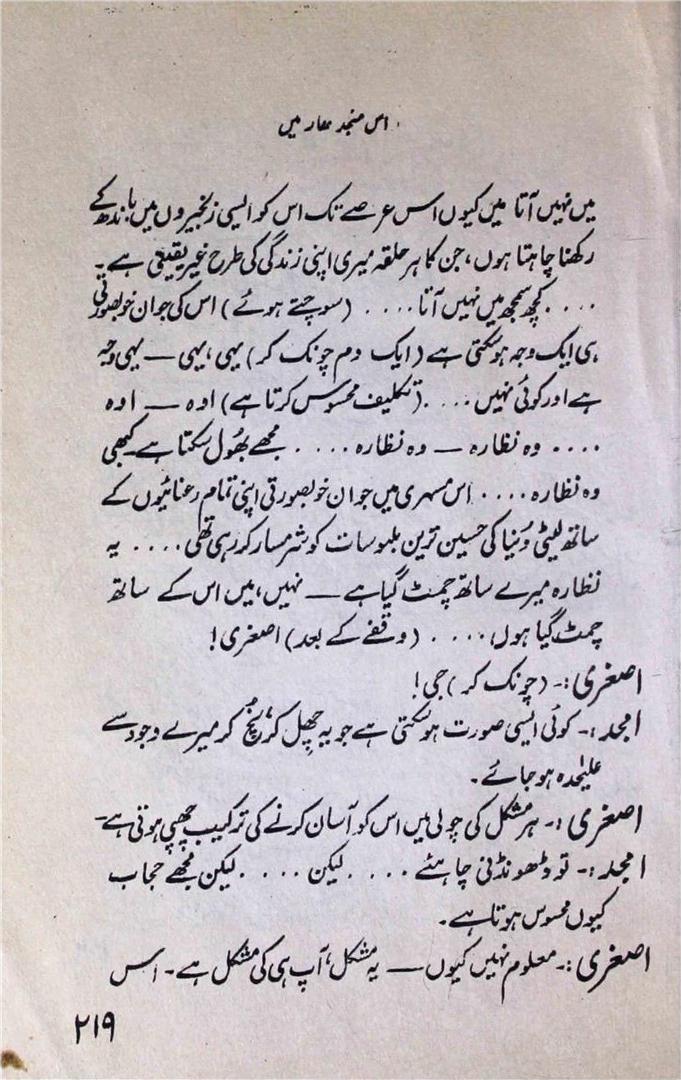 اس منجد ھار میں
میں نہیں آتا میں کیوں اس عرصے تک اس کو ایسی زنجیروں میں باندھ کے
رکھنا چاہتا ہوں، جن کا ہر حلقہ میری اپنی زندگی کی طرح غیر یقینی ہے۔
.... کچھ سمجھ میں نہیں آتا.... (سوچتے ہوئے) اس کی جوان خوبصورتی
ہی ایک وجہ ہو سکتی ہے (ایک دم چونک کر) یہی، یہی — یہی وجہ
ہے اور کوئی نہیں.... (تکلیف محسوس کرتا ہے) اوہ — اوہ
.... وہ نظارہ — وہ نظارہ.... مجھے بھُول سکتا ہے کبھی
وہ نظارہ.... اس مسہری میں جوان خوبصورتی اپنی تمام رعنائیوں کے
ساتھ لیٹی دُنیا کی حسین ترین ملبوسات کو شرمسار کر رہی تھی.... یہ
نظارہ میرے ساتھ چمٹ گیا ہے — نہیں، میں اس کے ساتھ
چمٹ گیا ہوں،.... (وقفے کے بعد) اصغری!
اصغری:۔ (چونک کر) جی!
امجد:۔ کوئی ایسی صورت ہو سکتی ہے جو یہ چھِل کر، نُچ کر میرے وجود سے
علیٰحدہ ہو جائے۔
اصغری:۔ ہر مشکل کی چولی میں اس کو آسان کرنے کی ترکیب چھپی ہوتی ہے۔
امجد:۔ تو ڈھونڈنی چاہئے.... لیکن.... لیکن مجھے حجاب
کیوں محسوس ہوتا ہے۔
اصغری:۔ معلوم نہیں کیوں — یہ مشکل، آپ ہی کی مشکل ہے۔ اس
۲۱۹